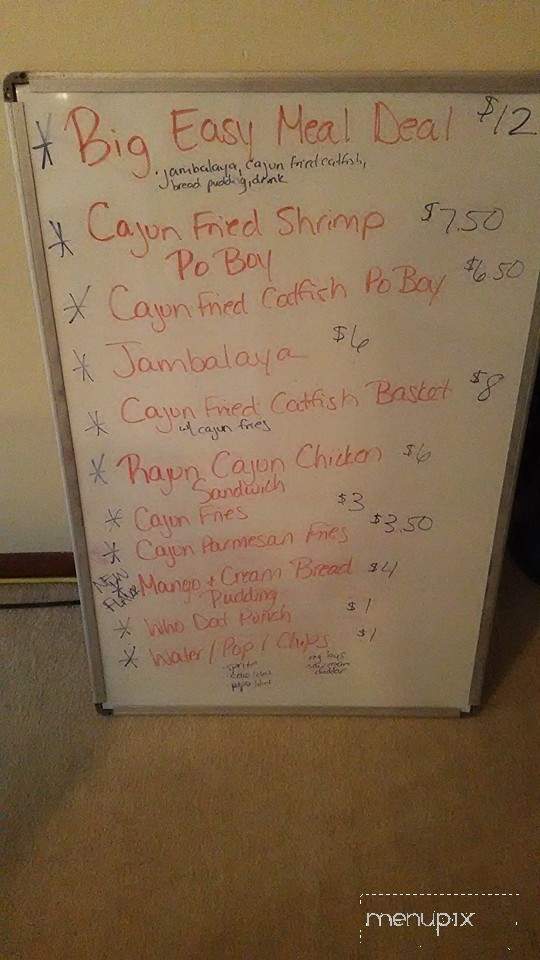 * Big Easy Meal Deal $12
. jambalaya, cajun fried catfish,
bread pudding, drink
* Cajun Fried Shrimp $7.50
Po Boy
* Cajun Fried Catfish Po Boy $6.50
* Jambalaya $6
* Cajun Fried Catfish Basket $8
w/ cajun fries
* Rajun Cajun Chicken $6
Sandwich
* Cajun Fries $3
* Cajun Parmesan Fries $3.50
NEW
* Mango + Cream Bread $4
Pudding
* Who Dat Punch $1
* Water / Pop / Chips $1
sprite
cheddar
menupix